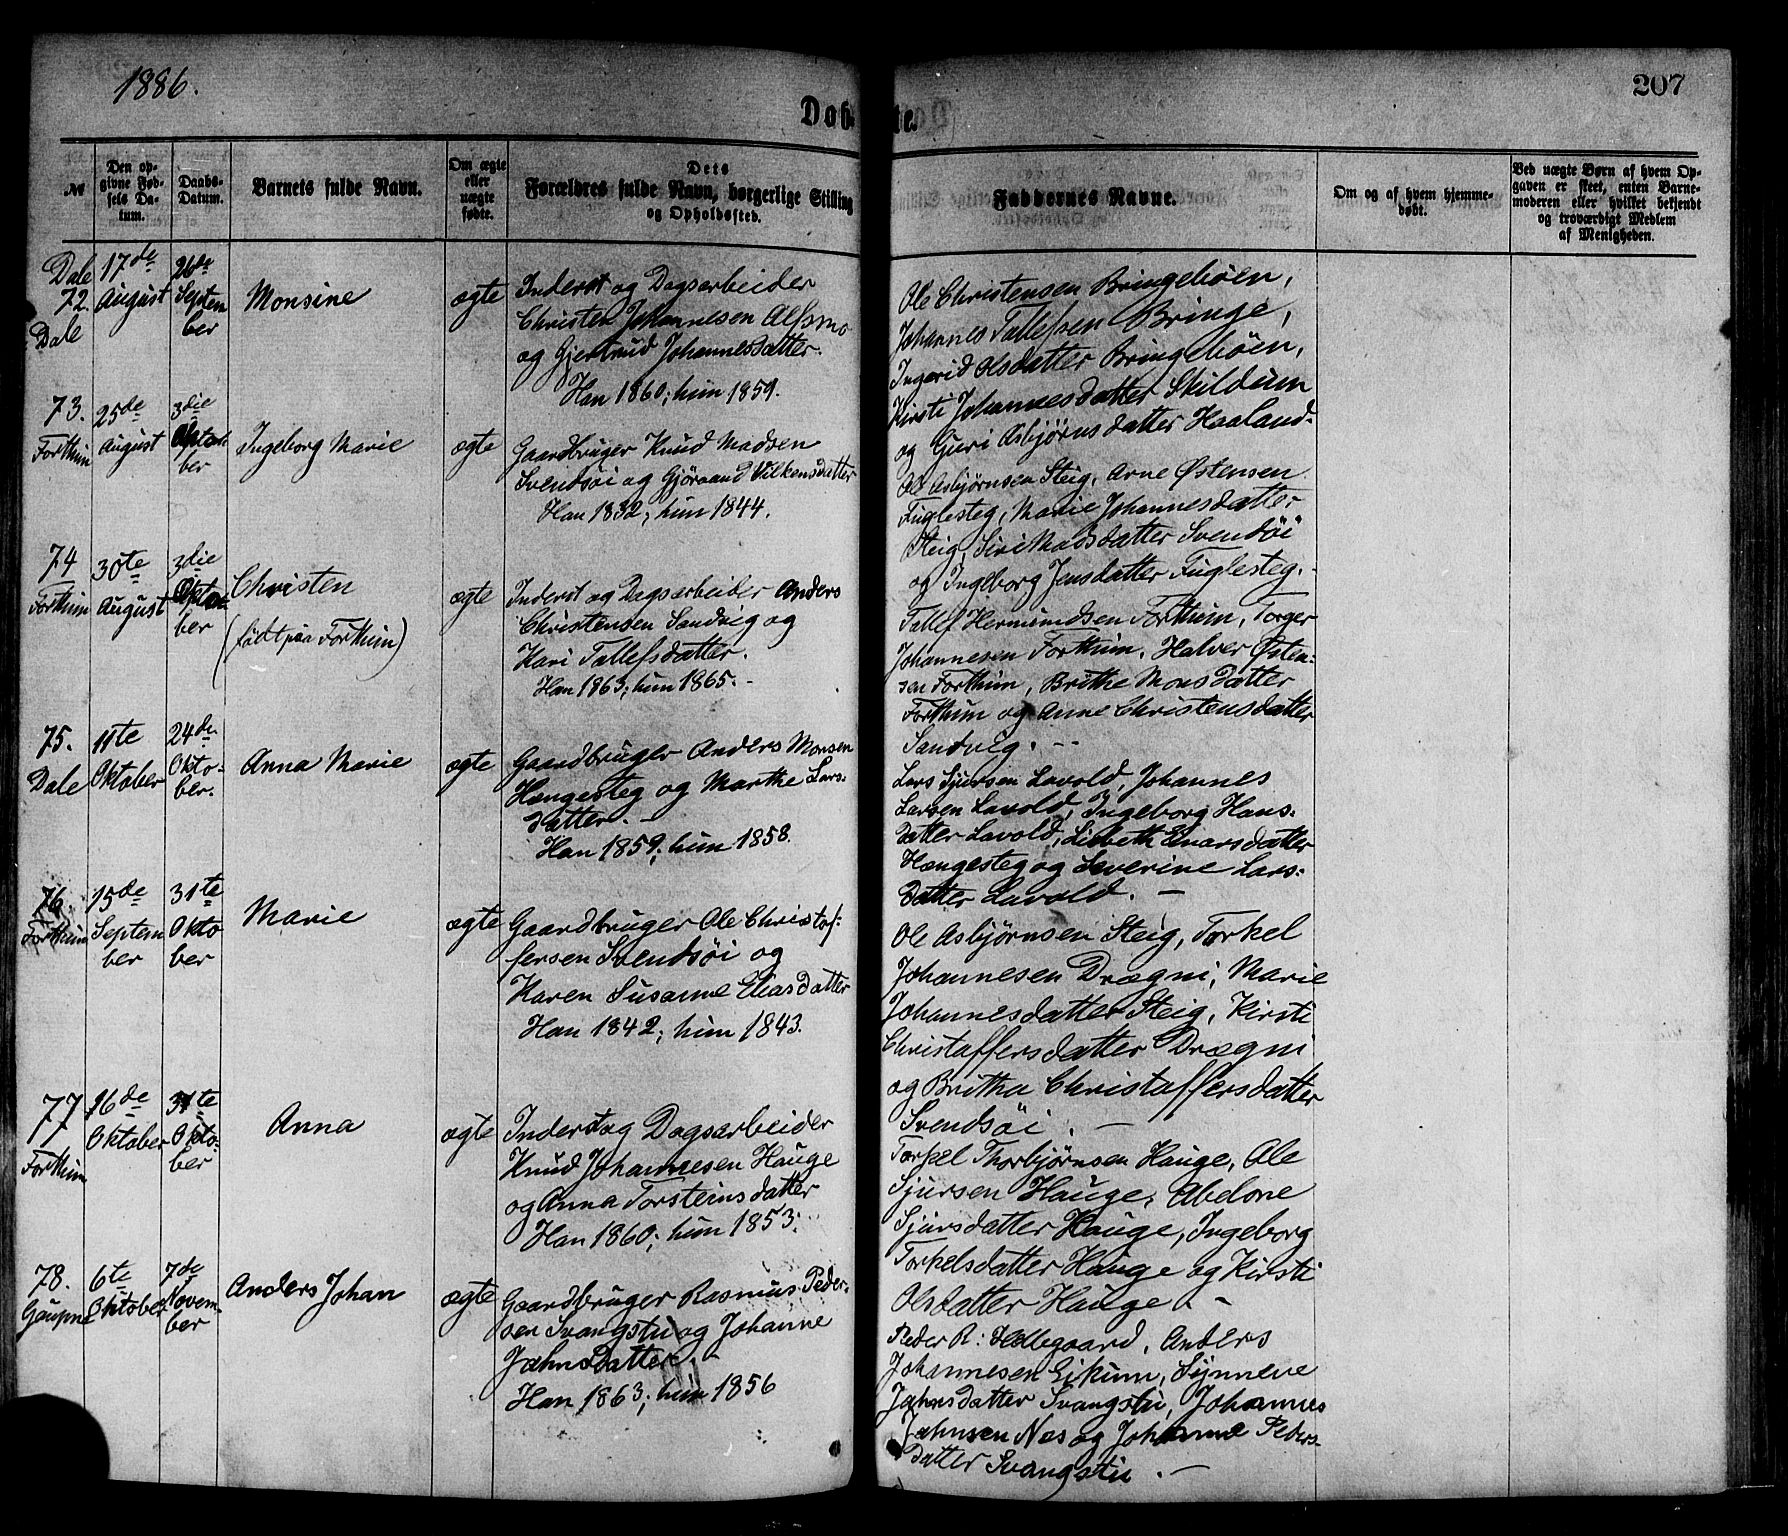 1886.
207
Dob
te.
№
Den op-
givne Fød-
sels Da-
tum.
Daabs-
Datum.
Barnets fulde Navn.
Om ægte
eller
uægte
fødte.
Dets
Forældres fulde Navn, borgerlige Stilling
og Opholdssted.
Faddernes Navne.
Om og af hvem hjemme-
døbt.
Ved uægte Børn af hvem Op-
gaven er skeet, enten Barne-
moderen eller hvilket bekjendt
og troværdigt Medlem
af Menigheden.
Dale
72.
Dale
17de
August
26de
Septem
ber
Monsine
ægte
Inderst og Dagsarbeider
Christen Johannesen Alfsmo
og Gjertrud Johannesdatter.
Han 1860; hun 1859.
Ole Christensen Bringebøen,
Johannes Tallefsen Bringe,
Ingerid Olsdatter Bringebøen,
Kirsti Johannesdatter Skildum
og Guri Asbjørnsdatter Haaland.
73.
Forthun
25de
August
3die
Oktob
ber
Ingeborg Marie
ægte
Gaardbruger Knud Madsen
Svendsøi og Gjøraand Vilkensdatter
Han 1832; hun 1844.
Ole Asbjørnsen Steig, Arne Østensen
Fuglesteg, Marie Johannesdatter
Steig, Siri Madsdatter Svendsøi
og Ingeborg Jensdatter Fuglesteg.
74
Forthun
30te
August
3die
Oktob
ber
Christen
(født paa Forthun)
ægte
Inderst og Dagsarbeider Anders
Christensen Sandvig og
Kari Tallefsdatter.
Han 1863; hun 1865. -
Tallef Hermundsen Forthun, Torger
Johannesen Forthun, Halver Østen-
sen Forthun, Brithe Monsdatter
Forthun og Anne Christensdatter
Sandvig. -
75.
Dale
11te
Oktober
24de
Okto-
ber.
Anna Marie
ægte
Gaardbruger Anders Monsen
Hængesteg og Marthe Lars-
datter. -
Han 1859; hun 1858.
Lars Sjursen Lavold, Johannes
Larsen Lavold, Ingeborg Hans-
datter Lavold, Lisbeth Enarsdatter
Hængesteg og Severine Lars-
datter Lavold. -
76.
Forthun
15de
Septem
ber
31te
Okto
ber
Marie
ægte
Gaardbruger Ole Christof-
fersen Svendsøi og
Karen Susanne Eliasdatter
Han 1842; hun 1843.
Ole Asbjørnsen Steig, Torkel
Johannesen Drægni, Marie
Johannesdatter Steig, Kirsti
Christaffersdatter Drægni
og Britha Christaffersdatter
Svendsøi. -
77
Forthun
16de
Oktober
31te
Okto-
ber
Anna
ægte
Inderst og Dagsarbeider
Knud Johannesen Hauge
og Anna Torsteinsdatter
Han 1860; hun 1853.
Torkel Thorbjørnsen Hauge, Ole
Sjursen Hauge, Abelone
Sjursdatter Hauge, Ingeborg
Torkelsdatter Hauge og Kirsti
Olsdatter Hauge. -
78.
Gaupne
6te
Oktober
7de
Novem-
ber
Anders Johan
ægte
Gaardbruger Rasmus Peder-
sen Svangstu og Johanne
Jahnsdatter. -
Han 1863; hun 1856
Peder R. Hollegaard, Anders
Johannesen Eikum, Synneve
Jahnsdatter Svangstu, Johannes
Jahnsen Næs og Johanne Peders-
datter Svangstu. -